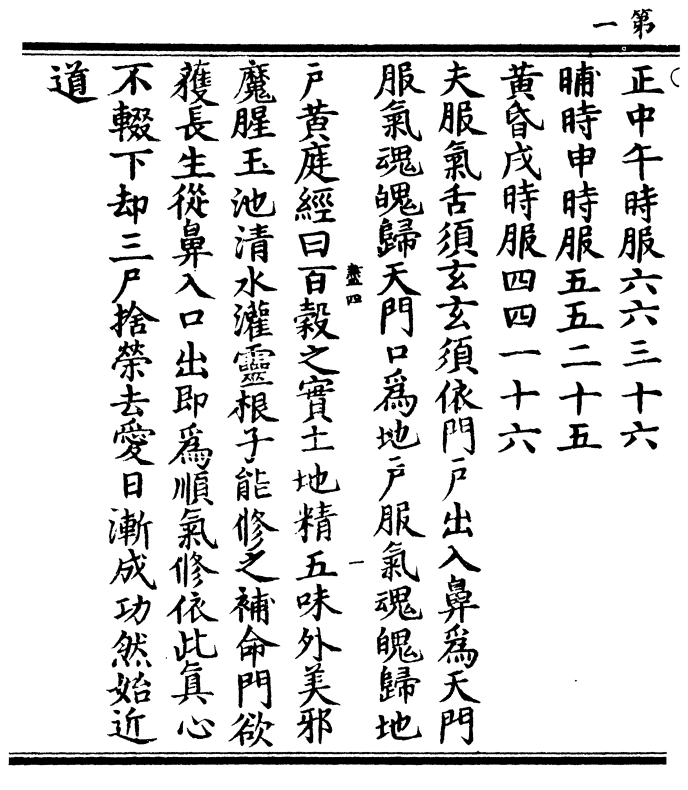 第一
正中午時服六六三十六
晡時申時服五五二十五
黃昏戌時服四四一十六
夫服氣舌須玄玄須依門戶出入鼻爲天門
服氣魂魄歸天門口爲地戶服氣魂魄歸地
戶黃庭經曰百穀之實土地精五味外美邪
盡四 一
魔腥玉池清水灌靈根子能修之補命門欲
獲長生從鼻入口出即爲順氣修依此真心
不輟下却三尸捨榮去愛日漸成功然始近
道